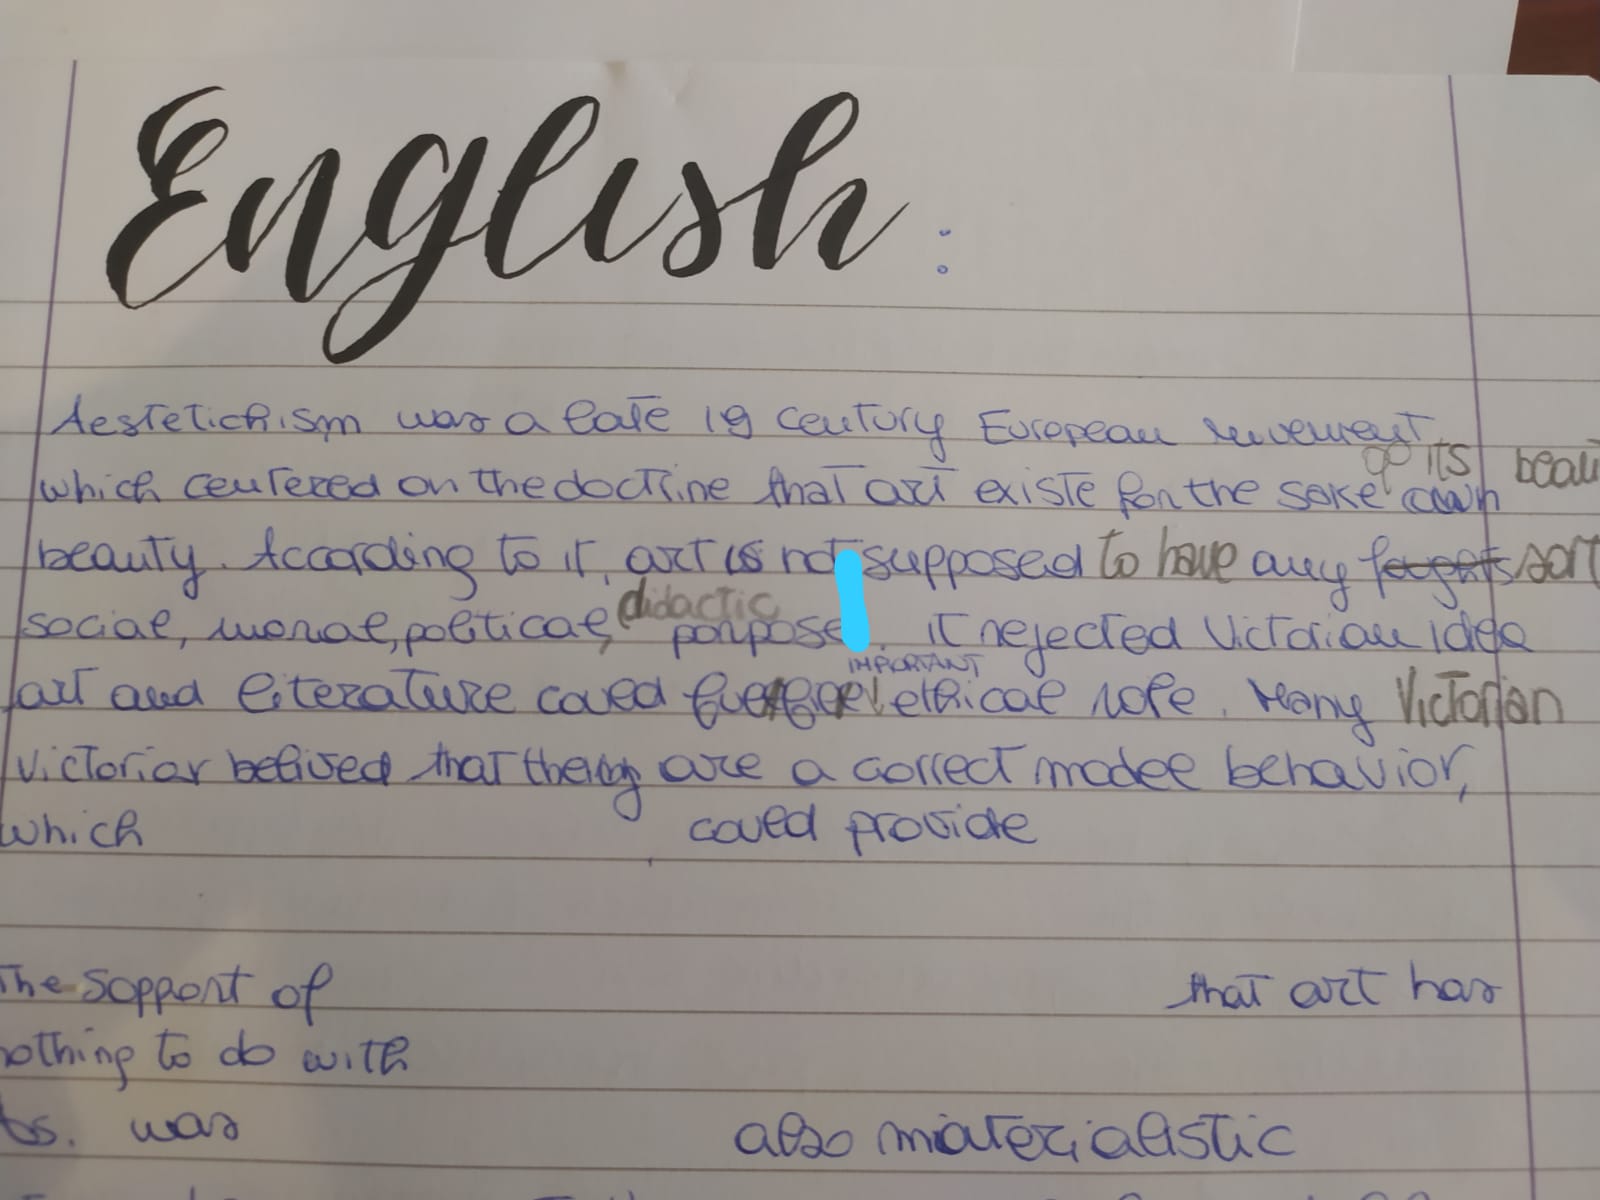 English :
Aestetichism was a late 19 century European movement
of its beau
which centered on the doctrine that art existe for the sake own
beauty. According to it, art is not supposed to have any sort
didactic
social, moral, political, porpose. it rejected Victorian idea
IMPORTANT
art and literature coued ethical role. Many Victorian
victorian belived that they are a correct model behavior,
which coued provide
The support of that art has
nothing to do with
ts. was also miaterialistic